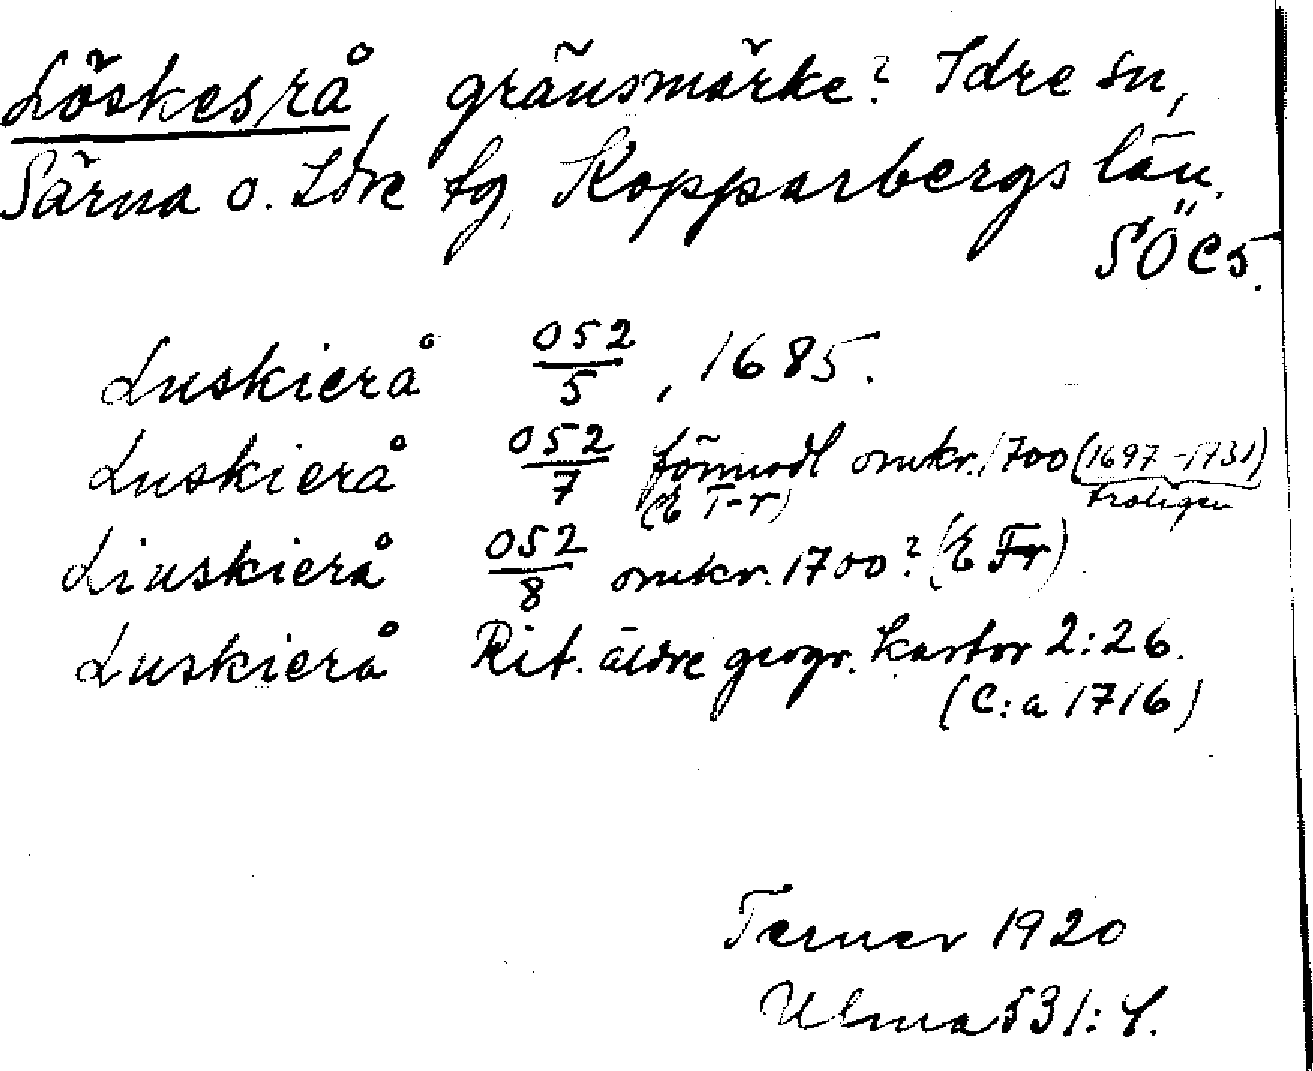 Löskesrå, gränsmärke? Idre sn,
Särna o. Idre tg, Kopparbergs län.
SÖ C5.
Luskierå 052/5, 1685.
Luskierå 052/7 förmodl omkr. 1700 (1697-1731)
(E Fr) troligen
Liuskierå 052/8 omkr. 1700? (E Fr)
Luskierå Rit. äldre geogr. kartor 2:26.
(C:a 1716)
Terner 1920
Ulma 531:4.